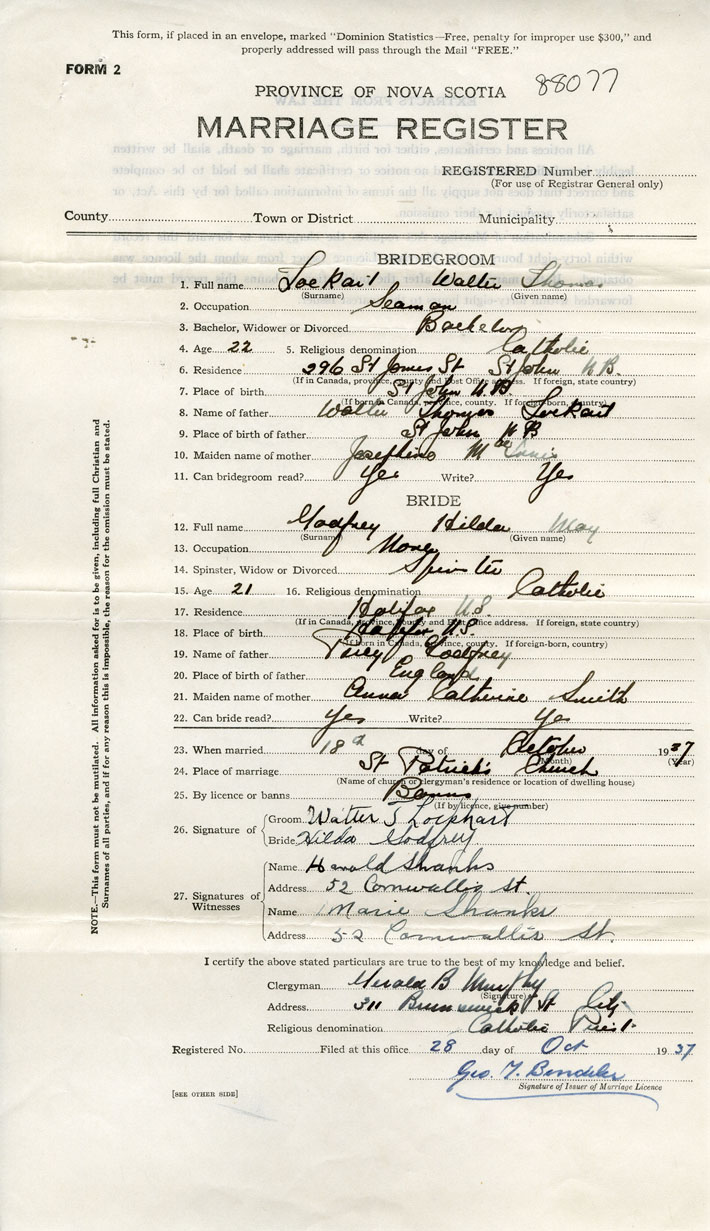 This form, if placed in an envelope, marked "Dominion Statistics—Free, penalty for improper use $300," and
properly addressed will pass through the Mail "FREE."
FORM 2
88077
PROVINCE OF NOVA SCOTIA
MARRIAGE REGISTER
REGISTERED Number
(For use of Registrar General only)
County Town or District Municipality
BRIDEGROOM
1. Full name Lockart Walter Thomas
(Surname) (Given name)
2. Occupation Seaman
3. Bachelor, Widower or Divorced Bachelor
4. Age 22 5. Religious denomination Catholic
6. Residence 296 St James St St John N.B.
(If in Canada, province, county and Post Office address. If foreign, state country)
7. Place of birth St John N.B.
(If born in Canada, province, county. If foreign-born, country)
8. Name of father Walter Thomas Lockart
9. Place of birth of father St John N B
10. Maiden name of mother Josephine
11. Can bridegroom read? Yes Write? Yes
BRIDE
12. Full name Godfrey Hilda May
(Surname) (Given name)
13. Occupation None
14. Spinster, Widow or Divorced Spinster
15. Age 21 16. Religious denomination Catholic
17. Residence Halifax N.S.
(If in Canada, province, county and Post Office address. If foreign, state country)
18. Place of birth Halifax N.S.
(If born in Canada, province, county. If foreign-born, country)
19. Name of father Percy Godfrey
20. Place of birth of father England
21. Maiden name of mother Anna Catherine Smith
22. Can bride read? Yes Write? Yes
23. When married 18th day of October 1937
(Month) (Year)
24. Place of marriage St Patrick's Church
(Name of church or clergyman's residence or location of dwelling house)
25. By licence or banns Banns
(If by licence, give number)
26. Signature of Groom Walter T Lockhart
Bride Hilda Godfrey
27. Signatures of Witnesses Name Harold Shanks
Address 52 Cornwallis St.
Name Marie Shanks
Address 52 Cornwallis St.
NOTE.—This form must not be mutilated. All information asked for is to be given, including full Christian and
Surnames of all parties, and if for any reason this is impossible, the reason for the omission must be stated.
I certify the above stated particulars are true to the best of my knowledge and belief.
Clergyman Gerald B Murphy
(Signature)
Address 311 Brunswick St City
Religious denomination Catholic Priest
Registered No. Filed at this office 28 day of Oct 1937
Geo. T.
Signature of Issuer of Marriage Licence
[SEE OTHER SIDE]